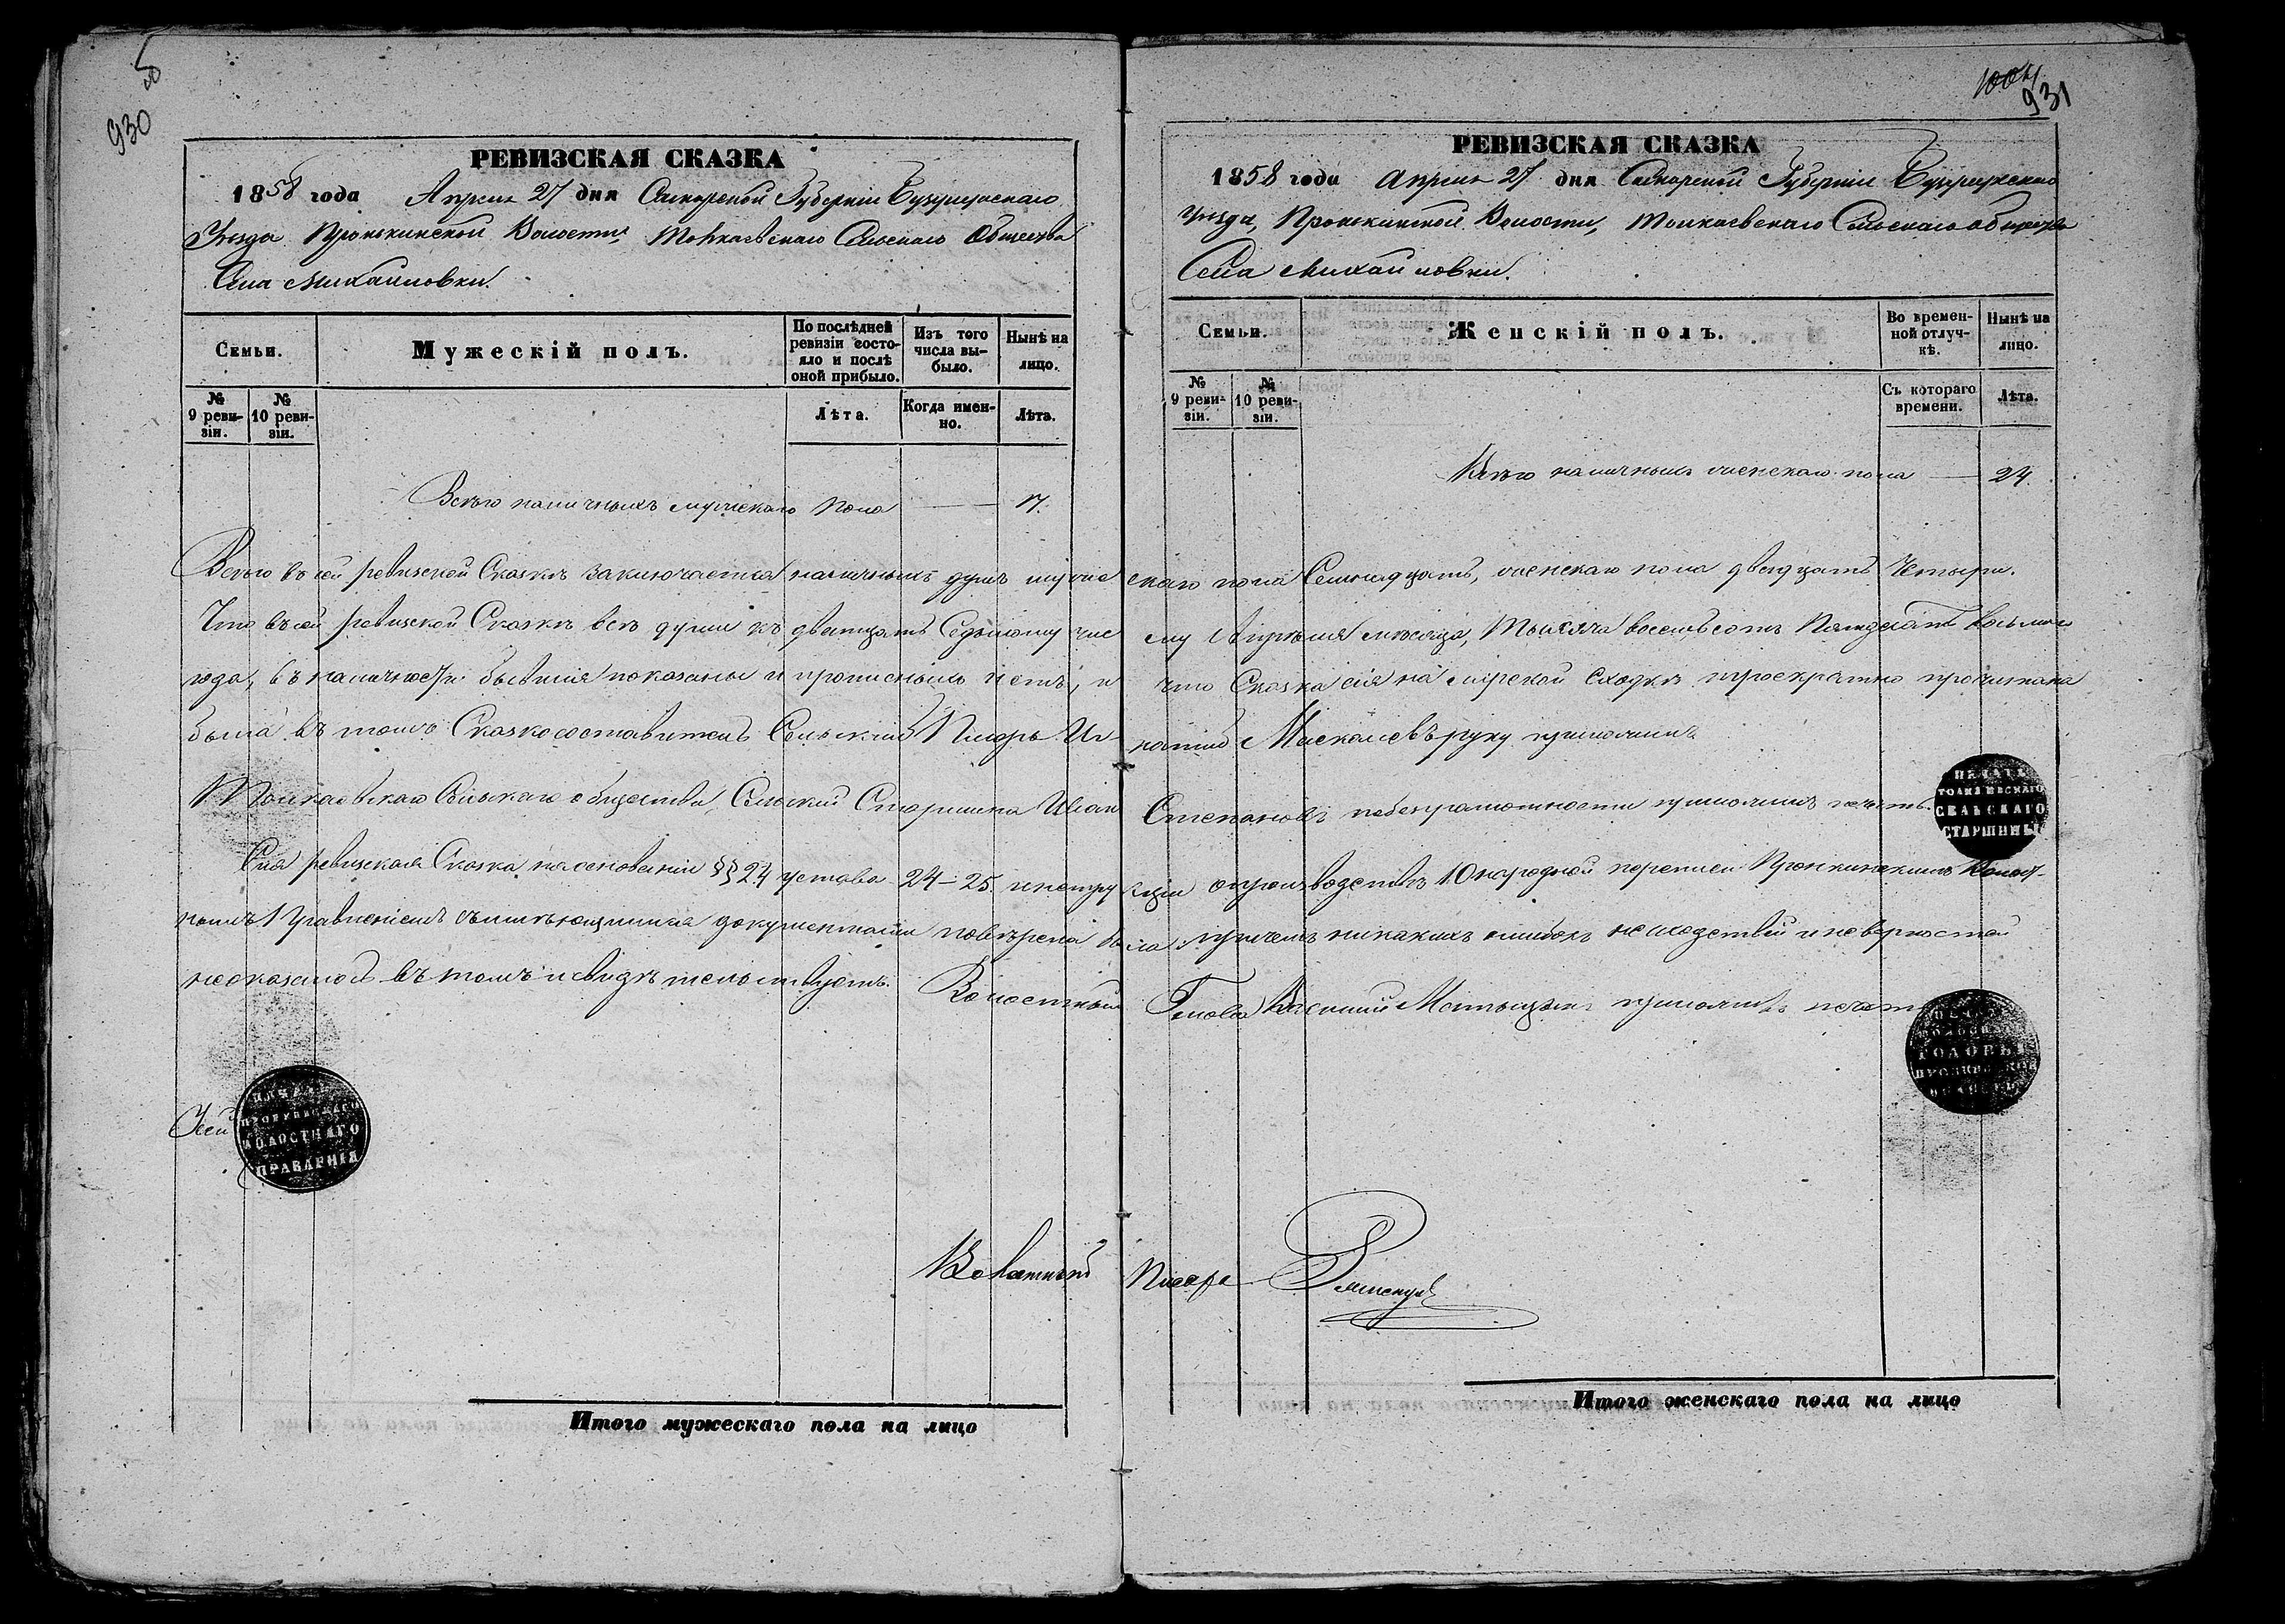 930
РЕВИЗСКАЯ СКАЗКА
1858 года Апреля 27 дня Самарской Губерніи Бузулукскаго
Уѣзда Пронькинской Волости Толкаевскаго Сельскаго Общества
Села Михайловки.
Семьи.
Мужескій полъ.
По послѣдней ревизіи состояло и послѣ оной прибыло.
Изъ того числа вы-было.
Нынѣ на лицо.
№ 9 реви-зіи.
№ 10 реви-зіи.
Лѣта.
Когда имен-но.
Лѣта.
Всего наличныхъ мужескаго пола — 17.
1004
931
РЕВИЗСКАЯ СКАЗКА
1858 года Апреля 27 дня Самарской Губерніи Бузулукскаго
Уѣзда, Пронькинской Волости, Толкаевскаго Сельскаго общества
Села Михайловки.
Семьи.
Женскій полъ.
Во времен-ной отлуч-кѣ.
Нынѣ на лицо.
№ 9 реви-зіи.
№ 10 реви-зіи.
Съ котораго времени.
Лѣта.
Всего наличныхъ женскаго пола — 24.
Всего въ сей ревизской Сказкѣ заключается наличныхъ душъ мужескаго пола Семнадцать, женскаго пола двадцать Четыри.
Что въ сей ревизской Сказкѣ всѣ души къ двадцать Седьмому числу Апрѣля мѣсяца, Тысяча восемьсотъ Пятдесятъ восьмаго
года, въ наличности бывшія показаны и прописныхъ нетъ, и что Сказка сія на мірской сходкѣ троекратно прочитана
была въ томъ Сказкосоставитель Сельскій Писарь руку приложилъ
Толкаевскаго Сельскаго общества, Сельскій Старшина Иванъ Степановъ по безграмотности приложилъ печать.
ПЕЧАТЬ
ТОЛКАЕВСКАГО
СЕЛЬСКАГО
СТАРШИНЫ
Сія ревизская Сказка на основаніи §§ 24 устава 24–25 инструкціи о производствѣ 10 народной переписи Пронькинскимъ Волост-
нымъ Правленіемъ съ имѣющимися документами повѣрена была причемъ никакихъ ошибокъ несходствій и неверностей
неоказалось въ томъ и свидѣтельствуетъ. Волостный Голова приложилъ печать
ПЕЧАТЬ
ГОЛОВЫ
ПРОНКИНСКОЙ
ВОЛОСТИ
ПЕЧАТЬ
ПРОНКИНСКАГО
ВОЛОСТНАГО
ПРАВЛЕНІЯ
Волостный Писарь
Итого мужескаго пола на лицо
Итого женскаго пола на лицо